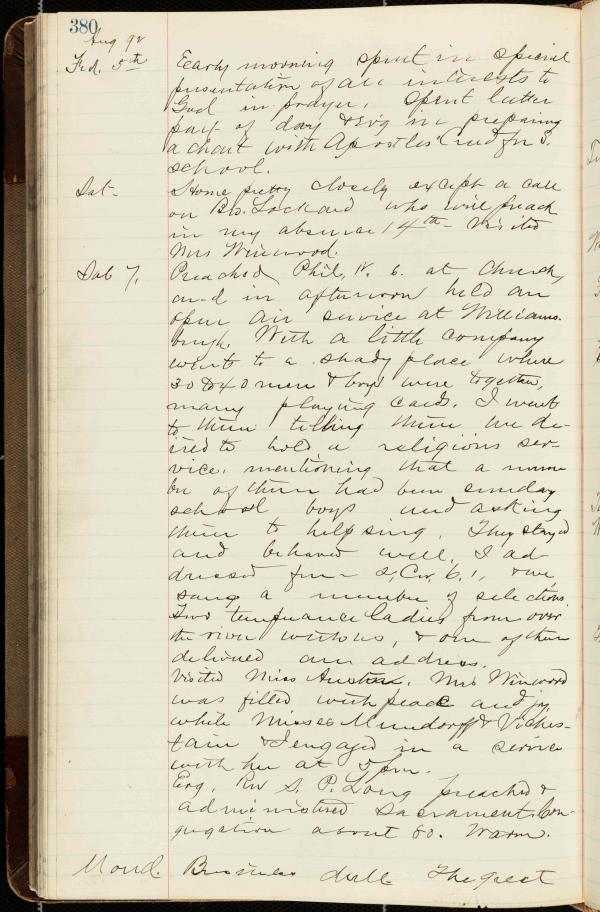 380
Aug 92
Frd. 5th Early morning spent in special
presentation of all interests to
God in prayer. Spent latter
part of day & Ev'g in preparing
a chart with Apostles' Creed for S.
school.
Sat- Home pretty closely except a call
on Bro. Lockard who will preach
in my absence 14th - Visited
Mrs Winwood.
Sab 7. Preached Phil. IV. 6. at Church,
and in afternoon held an
open air service at Williams-
burgh. With a little company
went to a shady place where
30 to 40 men & boys were together,
many playing cards. I went
to them telling them we de-
sired to hold a religious ser-
vice, mentioning that a num-
ber of them had been sunday
school boys and asking
them to help sing. They stayed
and behaved well. I ad-
dressed from - 2, Cor, 6.1, & we
sang a number of selections.
Two temperance ladies from over
the river with us, & one of them
delivered an address.
Visited Miss Mrs Winwood
was filled with peace and joy
while Misses Mundorff &
& I engaged in a service
with her at 5 pm.
Evg. Rev S. P. Long preached &
administered Sacrament. Con-
gregation about 60. Warm.
Mond. Business dull The great